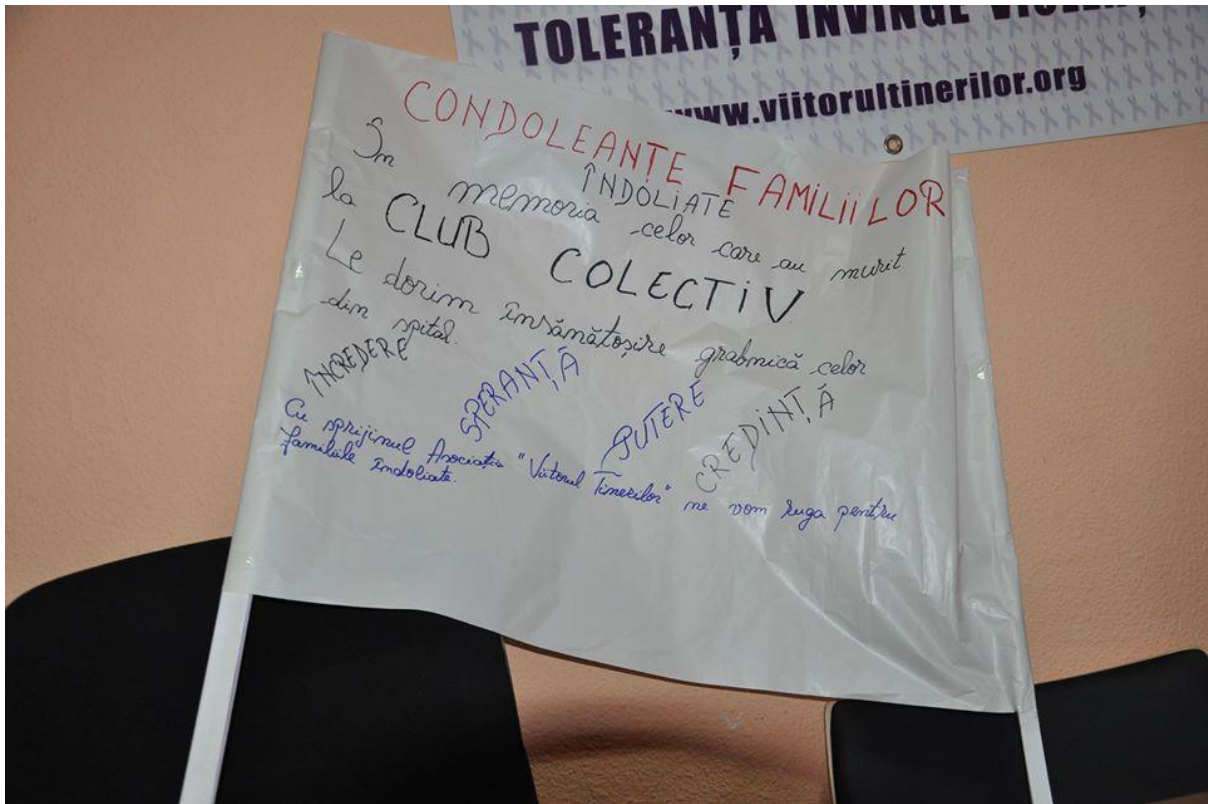 TOLERANȚA ÎNVINGE
www.viitorultinerilor.org
CONDOLEANȚE FAMILIILOR
ÎNDOLIATE
În memoria celor care au murit
la CLUB COLECTIV
Le dorim însănătoșire grabnică celor
din spital.
ÎNCREDERE SPERANȚĂ PUTERE CREDINȚĂ
Cu sprijinul Asociația "Viitorul Tinerilor" ne vom ruga pentru
familiile îndoliate.